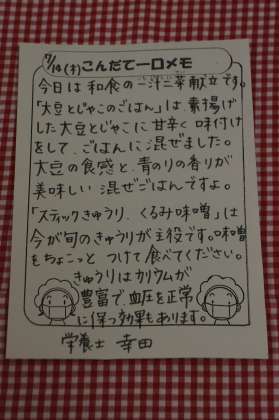 7/14(木)こんだて一口メモ
今日は和食の一汁二菜献立です。
「大豆とじゃこのごはん」は、素揚げ
した大豆とじゃこに甘辛く味付け
をして、ごはんに混ぜました。
大豆の食感と、青のりの香りが
美味しい混ぜごはんですよ。
「スティックきゅうり、くるみ味噌」は
今が旬のきゅうりが主役です。味噌
をちょこっとつけて食べてください。
きゅうりはカリウムが
豊富で、血圧を正常
に保つ効果もあります。
学養士 幸田